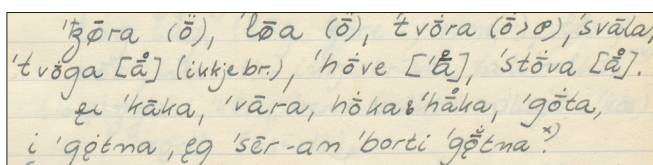 'ꜩøra (ȫ), 'lōa (ȫ), 'tvȱra (ȱ>ꝏ), 'svāla,
'tvȱga [å̄] (ikkje br.), 'hȱve ['å̄], 'stȱva [å̄].
ęi 'kāka, 'vāra, hȱka & 'hå̄ka, 'gȱta,
i 'gø̨tna, ęg 'sēr-an 'borti 'gø̨̄tna. x)